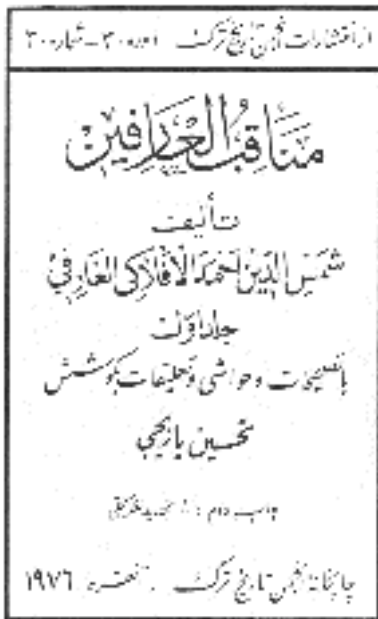 از انتشارات انجمن تاریخ ترک دوره ۳۰ - شماره ۳۰
مناقب العارفین
تألیف
شمس الدین احمد الافلاکی العارفی
جلد اول
با تصحیحات و حواشی و تعلیقات بکوشش
تحسین یازیجی
چاپ دوم
چاپخانۀ انجمن تاریخ ترک آنقره ۱۹۷۶